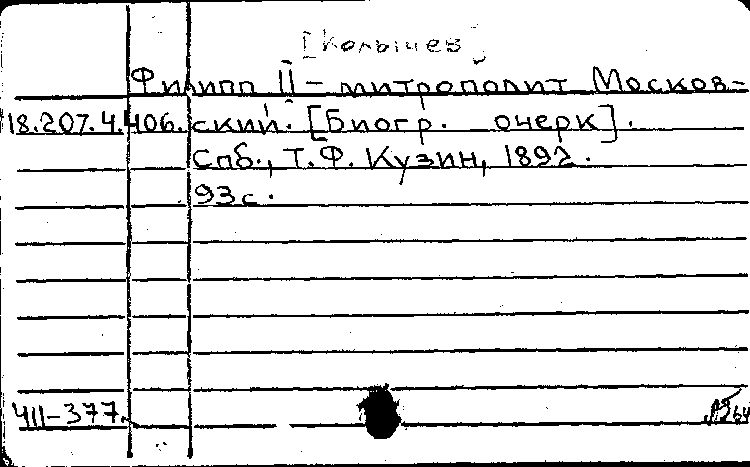 [Колычев]
Филипп II – митрополит Москов-
18.207.4.406. ский. [Биогр. очерк].
Спб., Т.Ф. Кузин, 1892.
93 с.
Ч11-377.